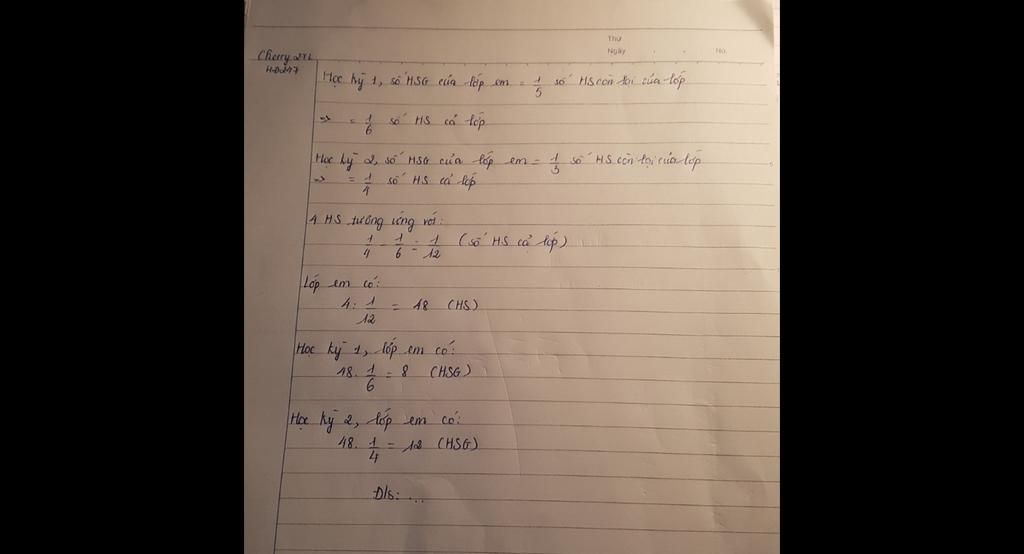 Thứ
Ngày . . No.
Cherry
Học kỳ 1, số HSG của lớp em = 1/5 số HS còn lại của lớp
=> = 1/6 số HS cả lớp
Học kỳ 2, số HSG của lớp em = 1/3 số HS còn lại của lớp
=> = 1/4 số HS cả lớp
4 HS tương ứng với:
1/4 - 1/6 = 1/12 (số HS cả lớp)
Lớp em có:
4: 1/12 = 48 (HS)
Học kỳ 1, lớp em có:
48. 1/6 = 8 (HSG)
Học kỳ 2, lớp em có:
48. 1/4 = 12 (HSG)
Đ/s: ...